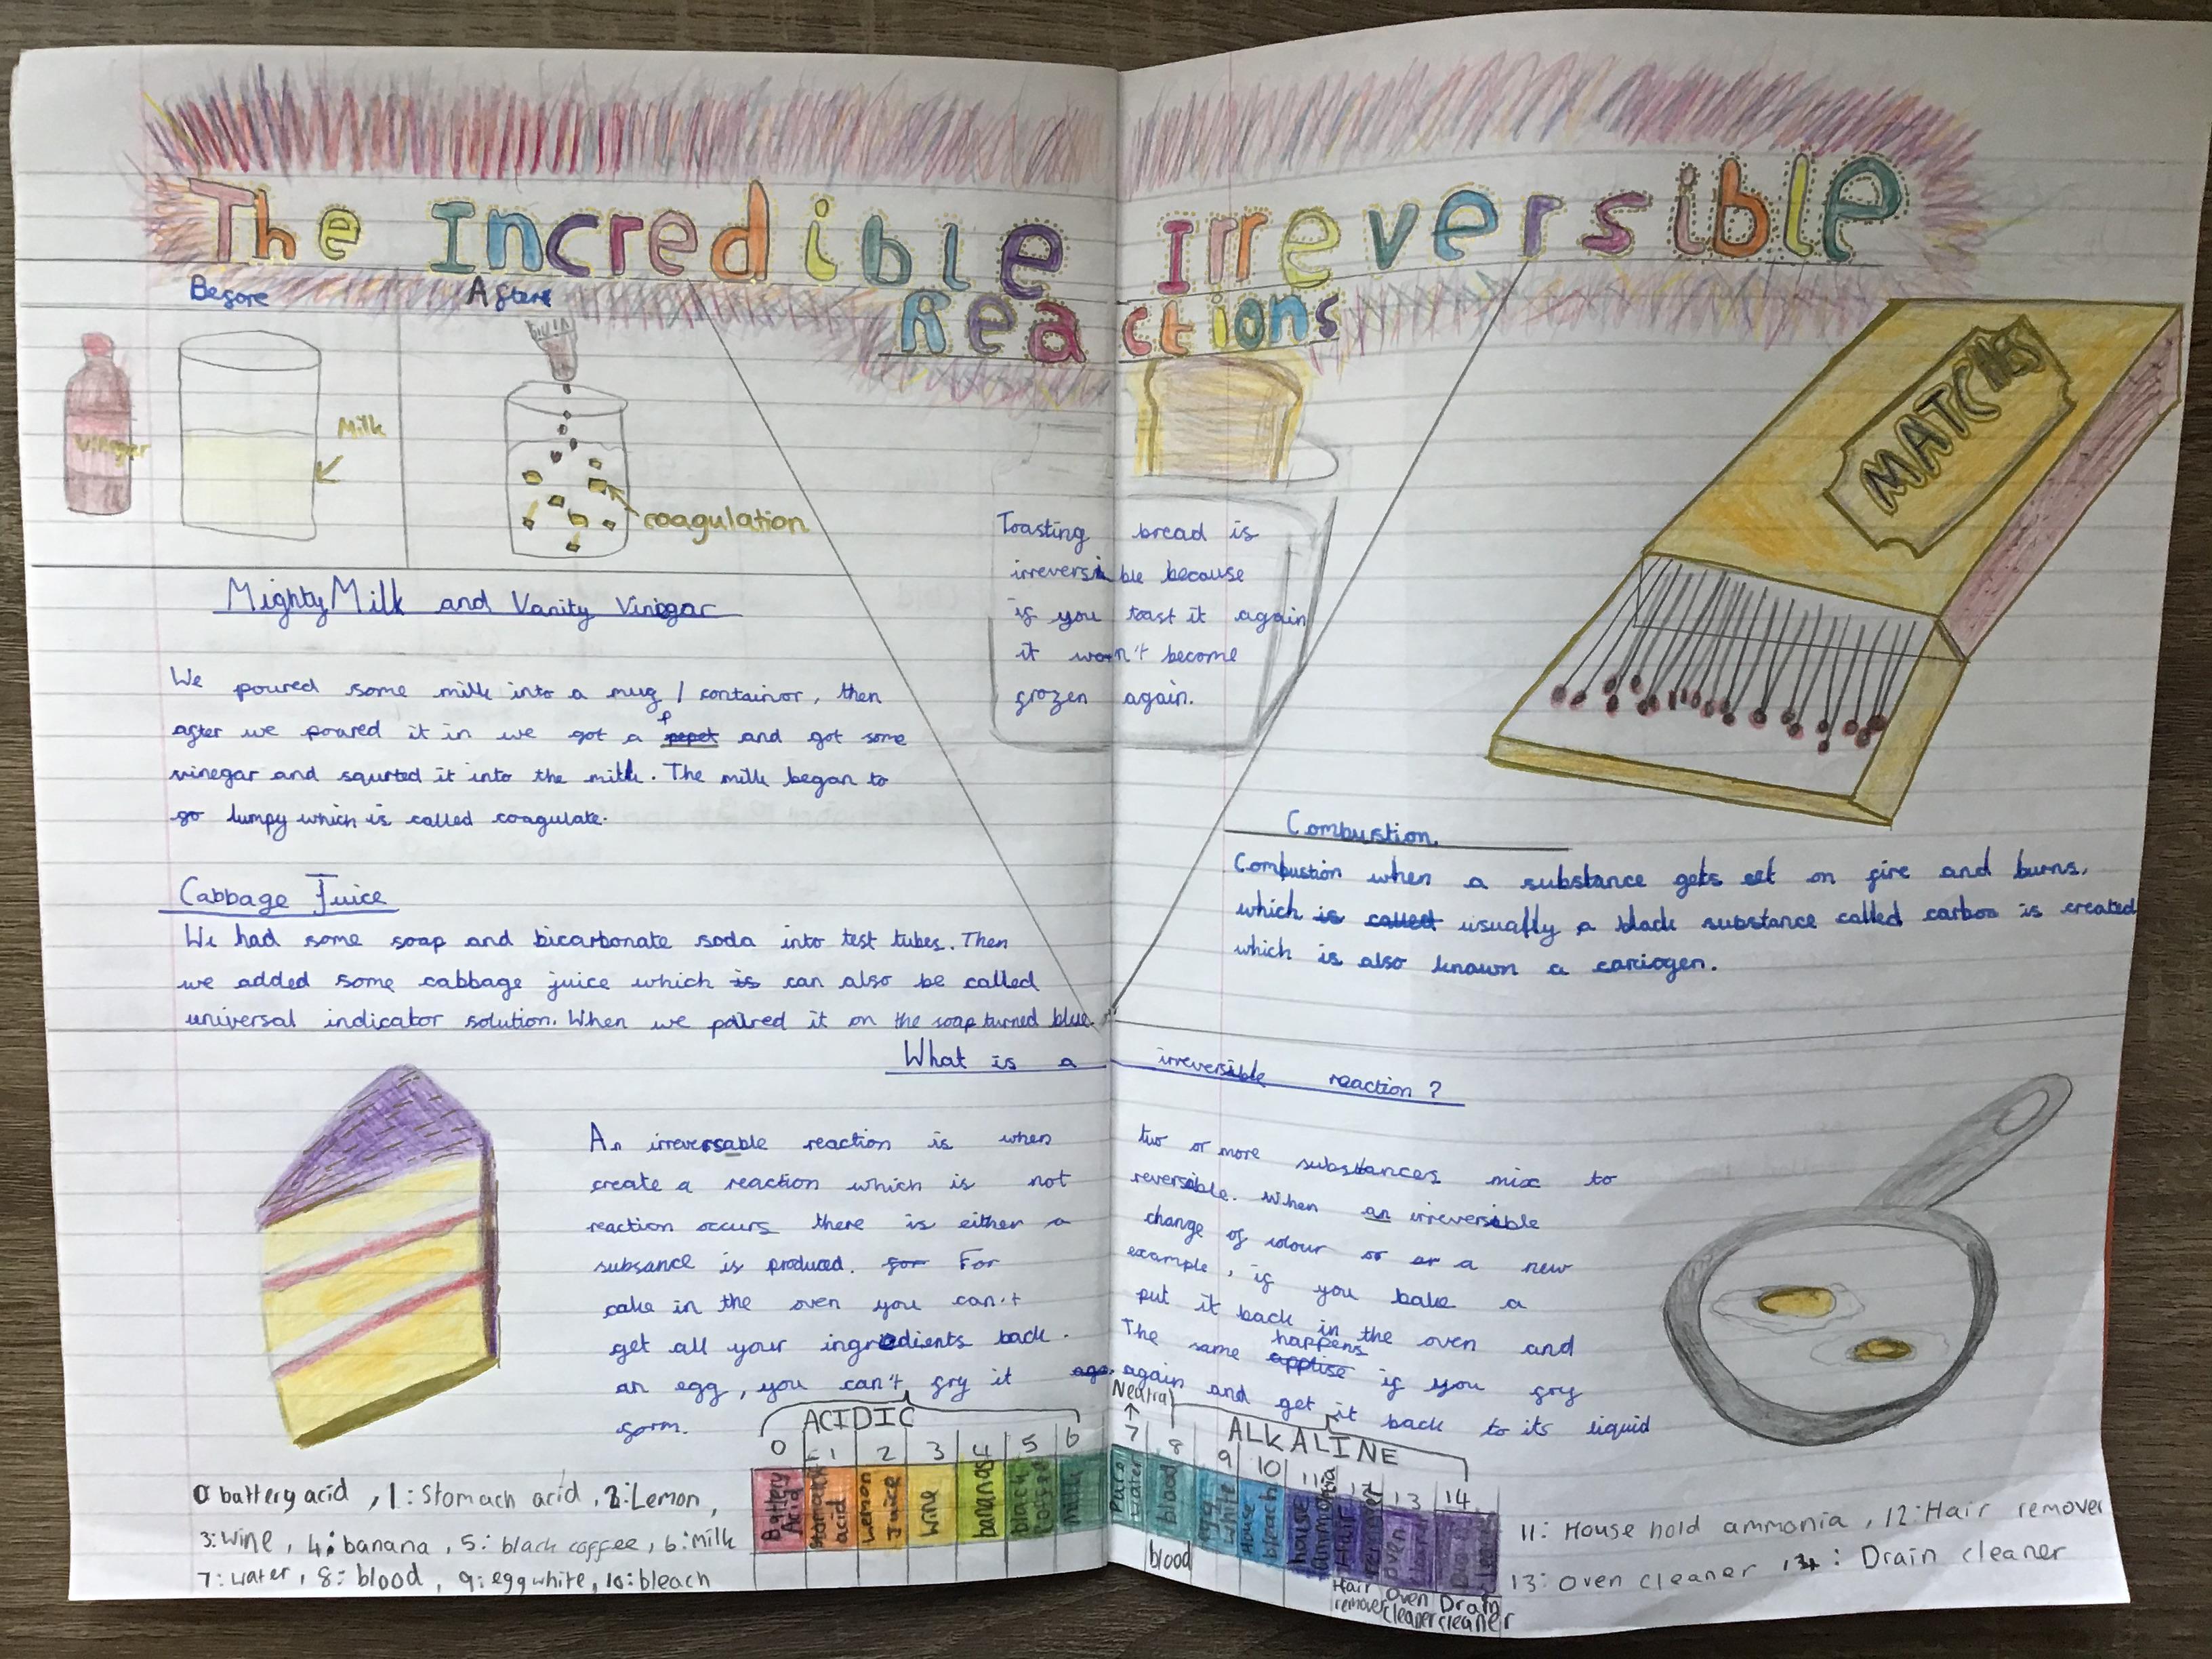 The Incredible Irreversible
Reactions
Before
After
Vinegar
Milk
coagulation
Mighty Milk and Vanity Vinigar
We poured some milk into a mug / container, then
after we poured it in we got a pepet and got some
vinegar and squrted it into the milk. The milk began to
go lumpy which is called coagulate.
Cabbage Juice
We had some soap and bicarbonate soda into test tubes. Then
we added some cabbage juice which is can also be called
universal indicator solution. When we poured it on the soap turned blue.
Toasting bread is
irreversible because
if you toast it again
it won't become
frozen again.
MATCHES
Combustion.
Combustion when a substance gets set on fire and burns,
which is called usually a black substance called carbon is created
which is also known a carciogen.
What is a irreversible reaction?
An irreversable reaction is when two or more substances mix to
create a reaction which is not reversible. When an irreversible
reaction occurs there is either a change of colour or or a new
subsance is produced. for For example, if you bake a
cake in the oven you can't put it back in the oven and
get all your ingredients back. The same applise happens if you fry
an egg, you can't fry it aga. again and get it back to its liquid
form.
ACIDIC
Neutral
ALKALINE
0 1 2 3 4 5 6 7 8 9 10 11 12 13 14
Battery Acid
Stomach acid
Lemon Juice
Wine
bananas
black coffee
milk
Pure water
blood
egg white
House bleach
house ammonia
Hair remover
Oven cleaner
Drain cleaner
blood
Hair remover
Oven cleaner
Drain cleaner
0 battery acid, 1: Stomach acid, 2: Lemon,
3: Wine, 4: banana, 5: black coffee, 6: milk
7: water, 8: blood, 9: egg white, 10: bleach
11: House hold ammonia, 12: Hair remover
13: Oven cleaner 14: Drain cleaner